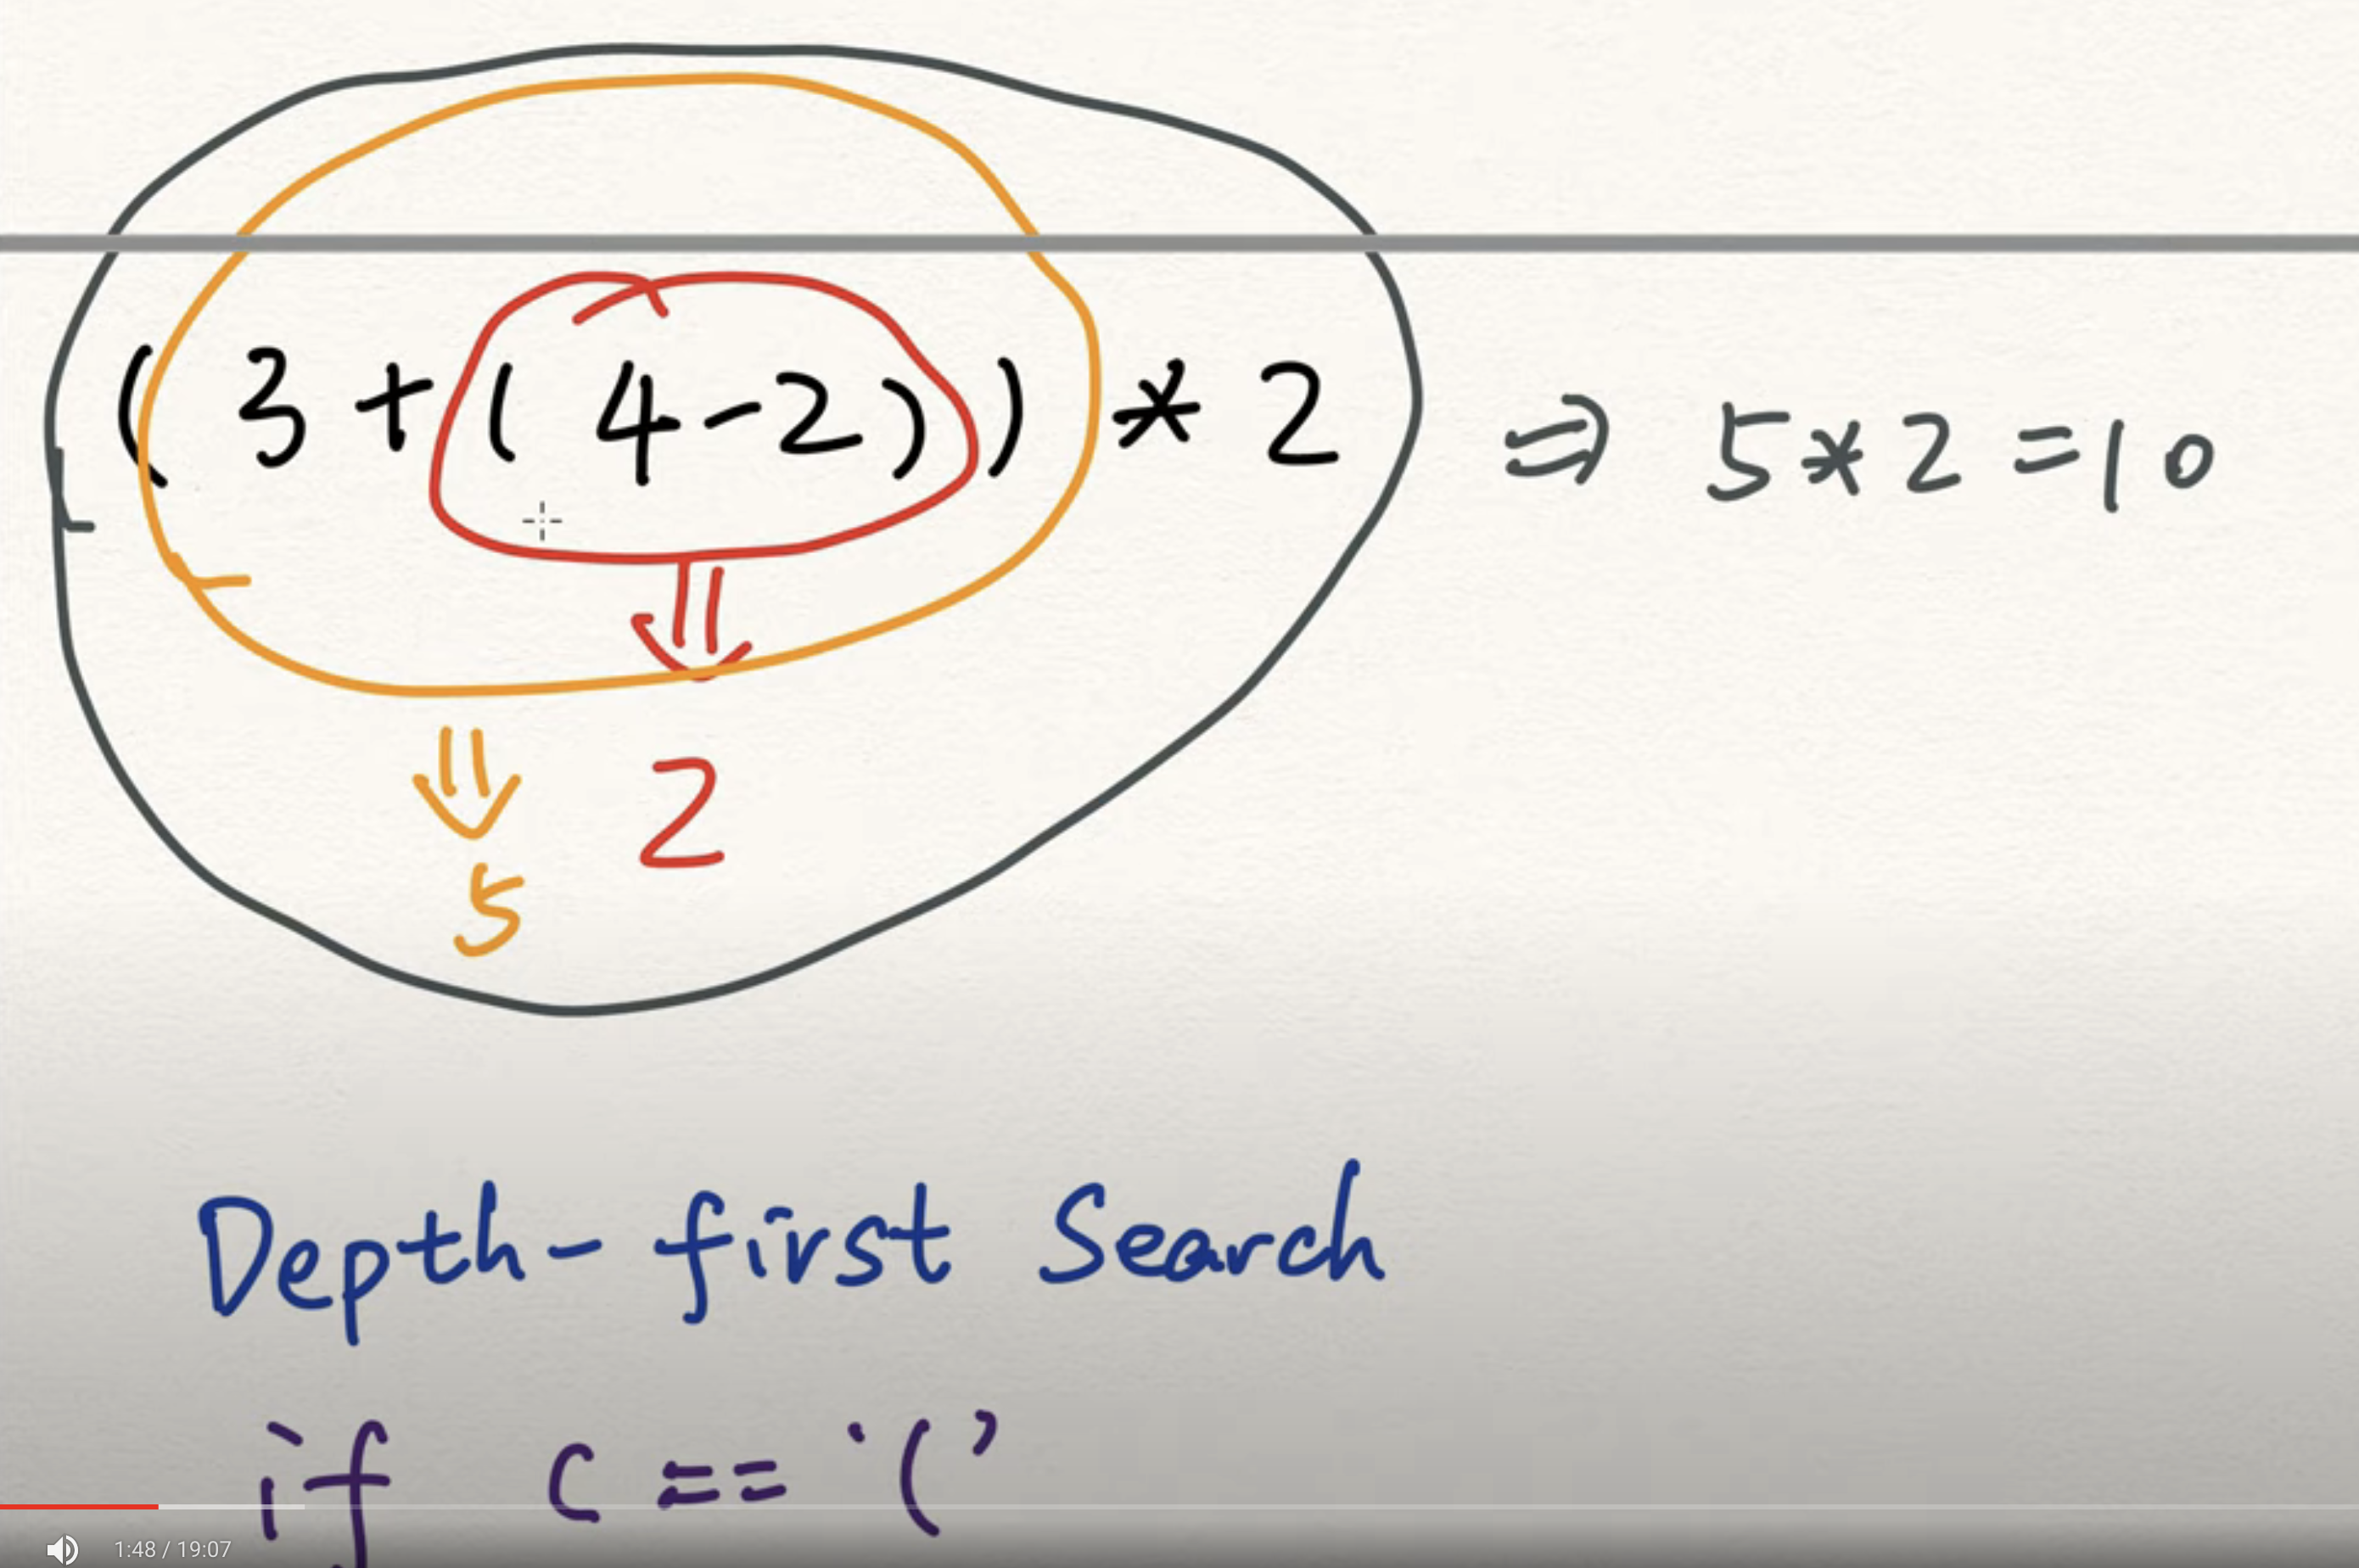 ( 3 + ( 4 - 2 ) ) * 2 ⇒ 5 * 2 = 10
2
5
Depth-first Search
if c == '('
1:48 / 19:07